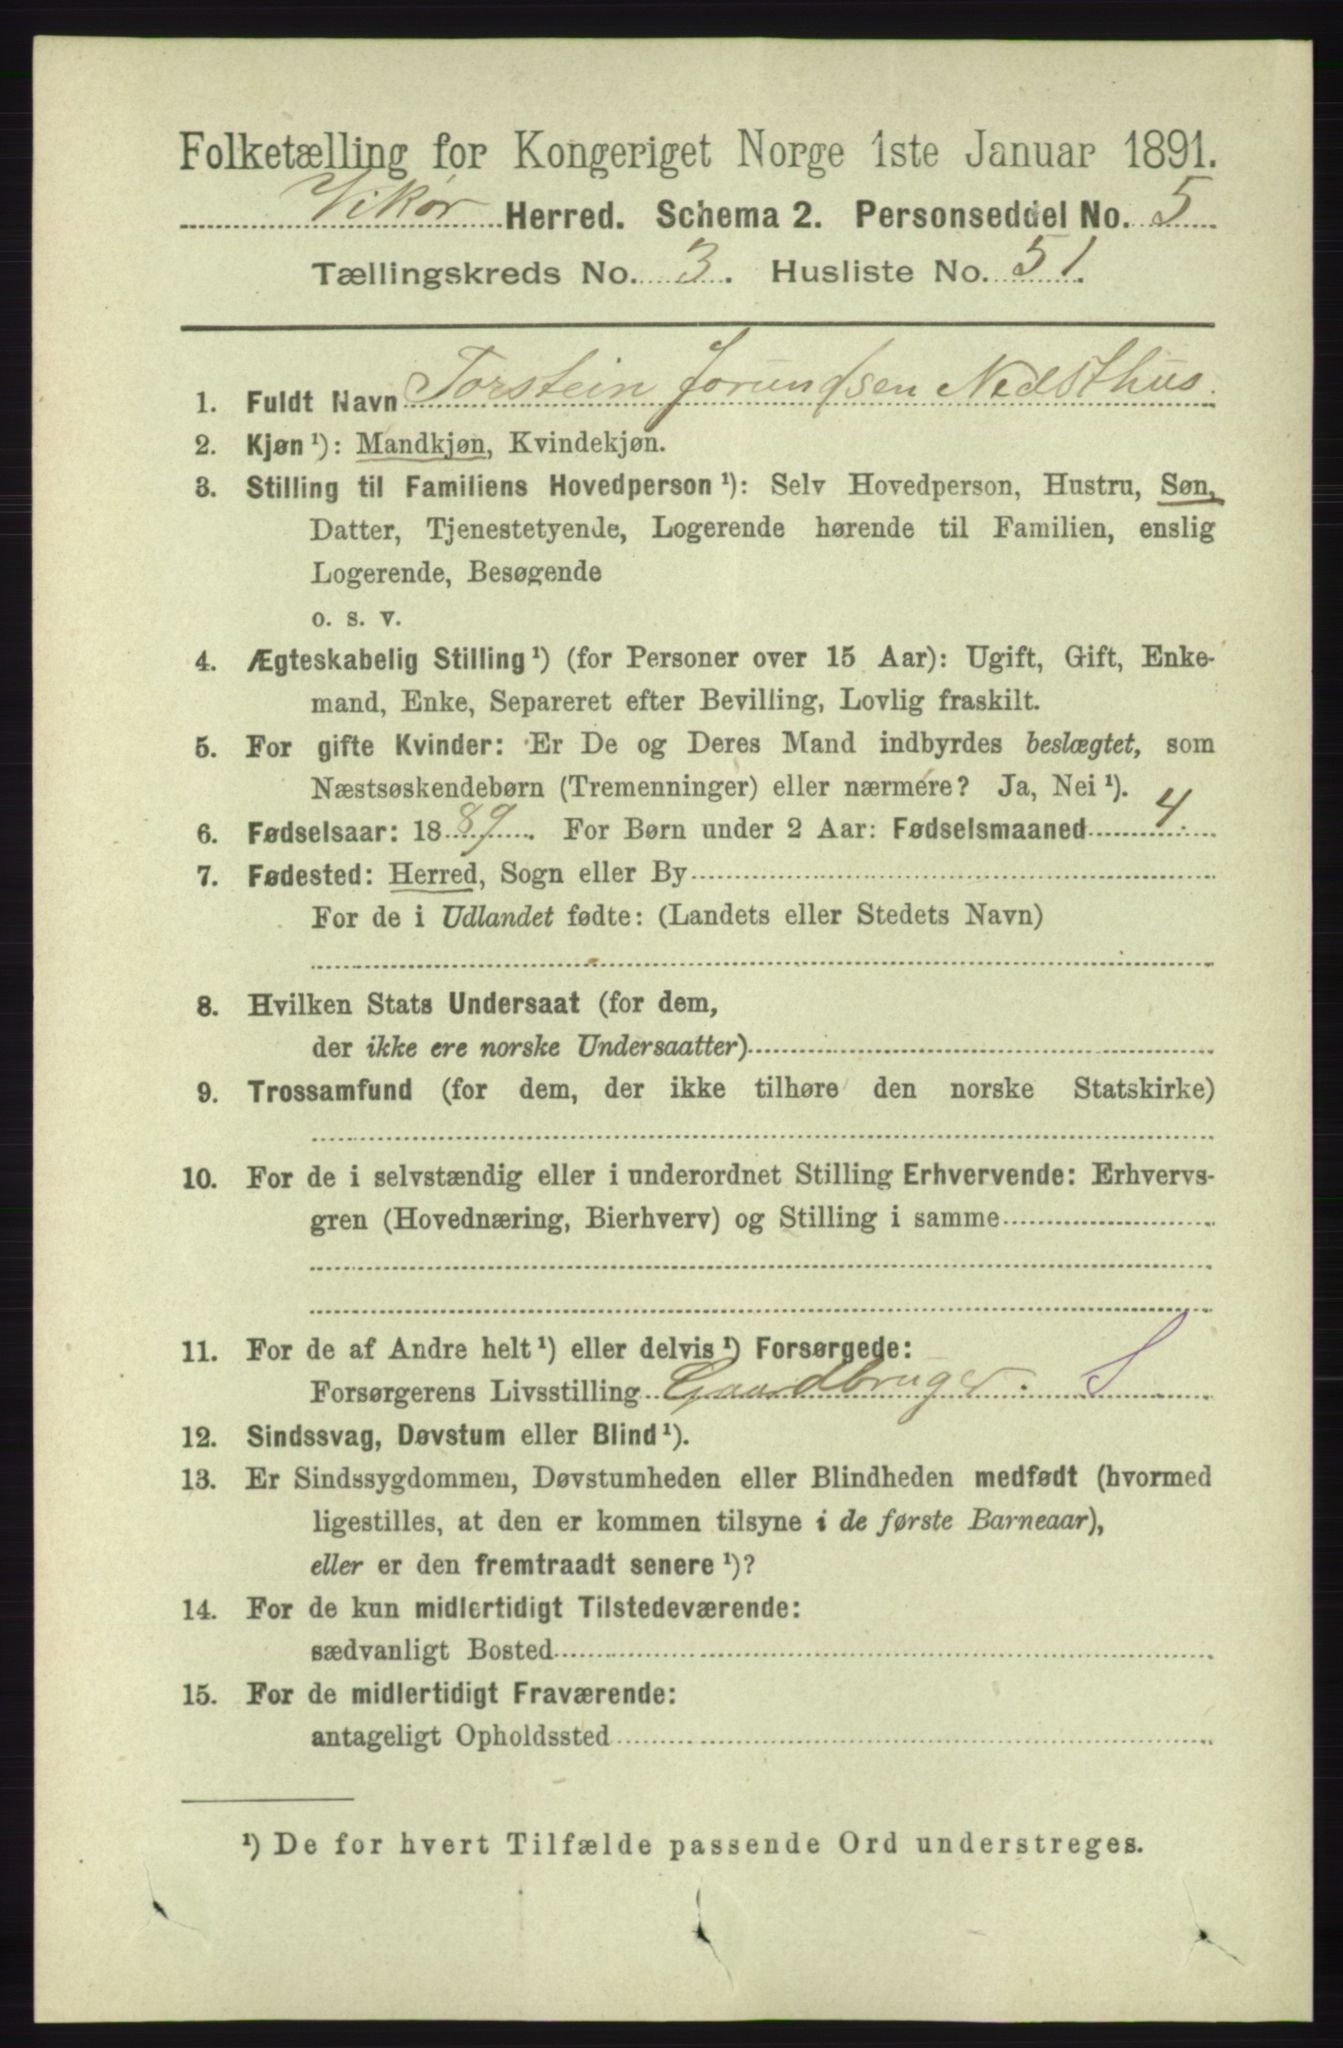 Folketælling for Kongeriget Norge 1ste Januar 1891.
Vikør Herred. Schema 2. Personseddel No. 5
Tællingskreds No. 3. Husliste No. 51.
1. Fuldt Navn Torstein Jorundsen Nedsthus.
2. Kjøn ¹): Mandkjøn, Kvindekjøn.
3. Stilling til Familiens Hovedperson ¹): Selv Hovedperson, Hustru, Søn,
Datter, Tjenestetyende, Logerende hørende til Familien, enslig
Logerende, Besøgende
o. s. v.
4. Ægteskabelig Stilling ¹) (for Personer over 15 Aar): Ugift, Gift, Enke-
mand, Enke, Separeret efter Bevilling, Lovlig fraskilt.
5. For gifte Kvinder: Er De og Deres Mand indbyrdes beslægtet, som
Næstsøskendebørn (Tremenninger) eller nærmere? Ja, Nei ¹).
6. Fødselsaar: 1889. For Børn under 2 Aar: Fødselsmaaned 4.
7. Fødested: Herred, Sogn eller By
For de i Udlandet fødte: (Landets eller Stedets Navn)
8. Hvilken Stats Undersaat (for dem,
der ikke ere norske Undersaatter)
9. Trossamfund (for dem, der ikke tilhøre den norske Statskirke)
10. For de i selvstændig eller i underordnet Stilling Erhvervende: Erhvervs-
gren (Hovednæring, Bierhverv) og Stilling i samme
11. For de af Andre helt ¹) eller delvis ¹) Forsørgede:
Forsørgerens Livsstilling Gaardbruger. S
12. Sindssvag, Døvstum eller Blind ¹).
13. Er Sindssygdommen, Døvstumheden eller Blindheden medfødt (hvormed
ligestilles, at den er kommen tilsyne i de første Barneaar),
eller er den fremtraadt senere ¹)?
14. For de kun midlertidigt Tilstedeværende:
sædvanligt Bosted
15. For de midlertidigt Fraværende:
antageligt Opholdssted
¹) De for hvert Tilfælde passende Ord understreges.